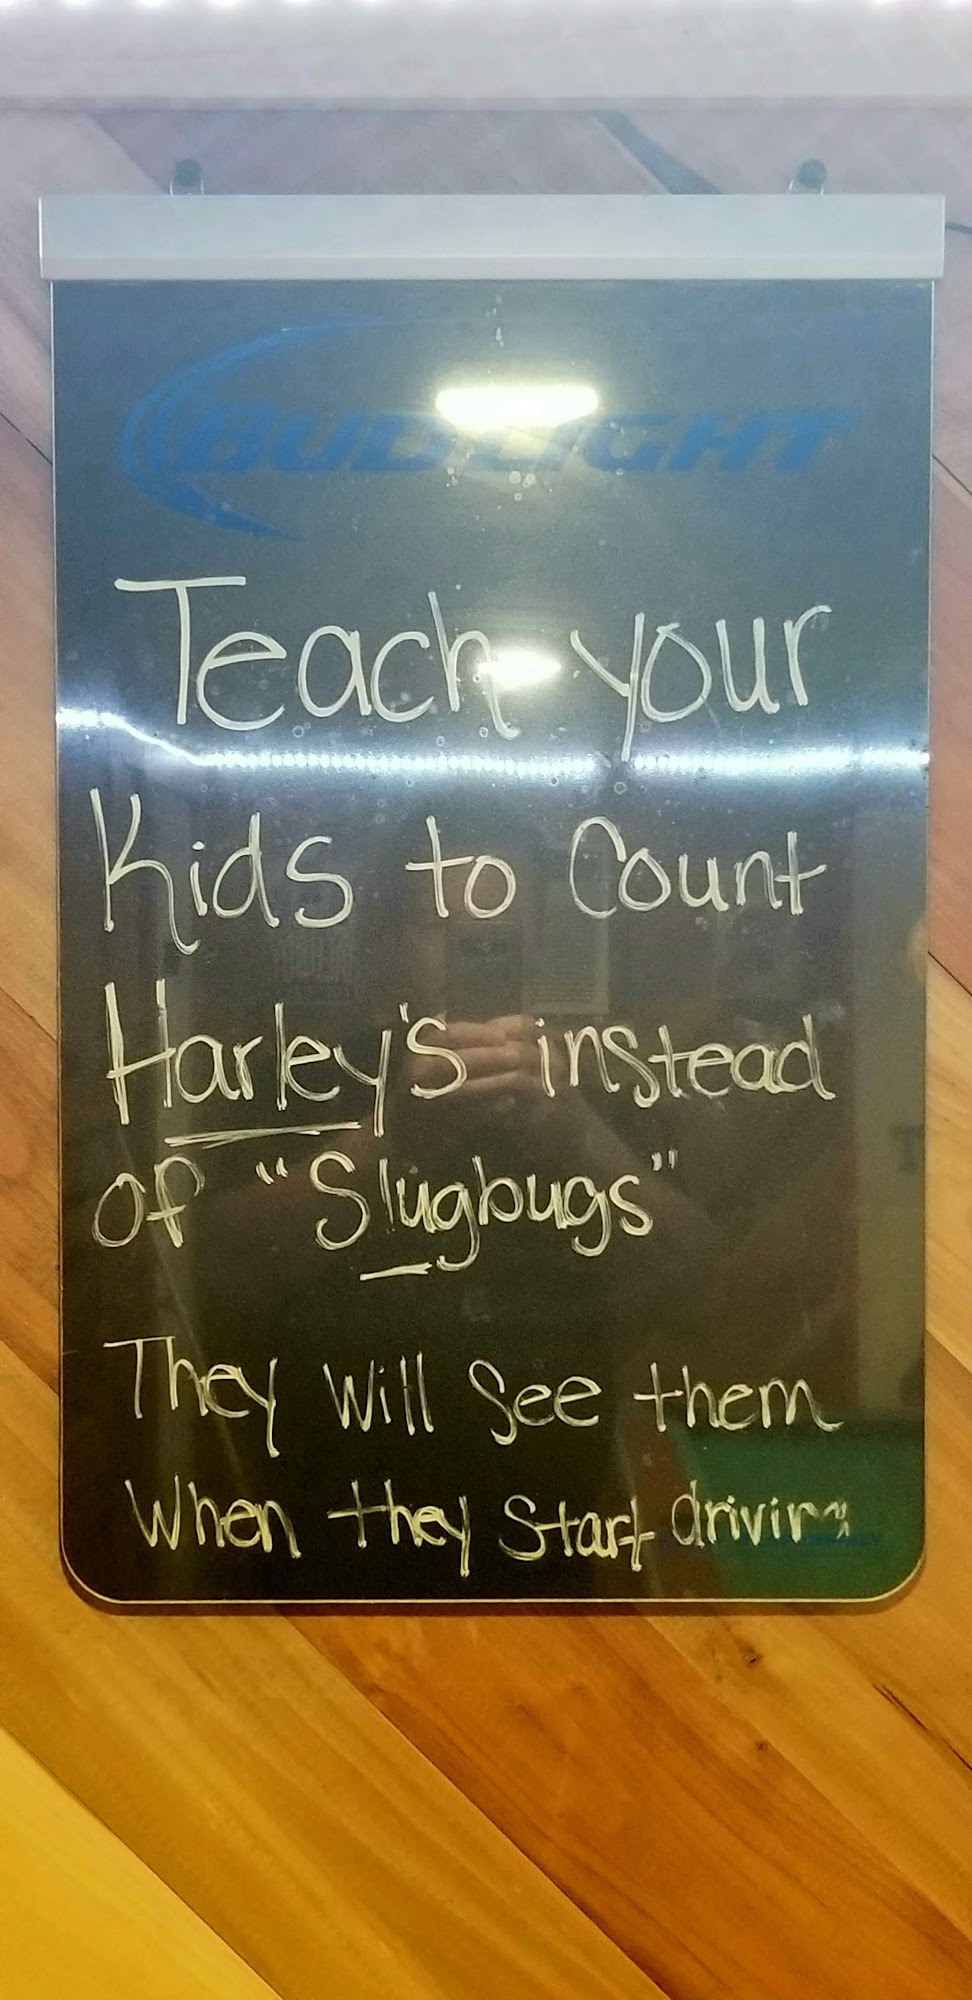 BUD LIGHT
Teach your
Kids to Count
Harley's instead
of "Slugbugs"
They Will See them
When they Start driving